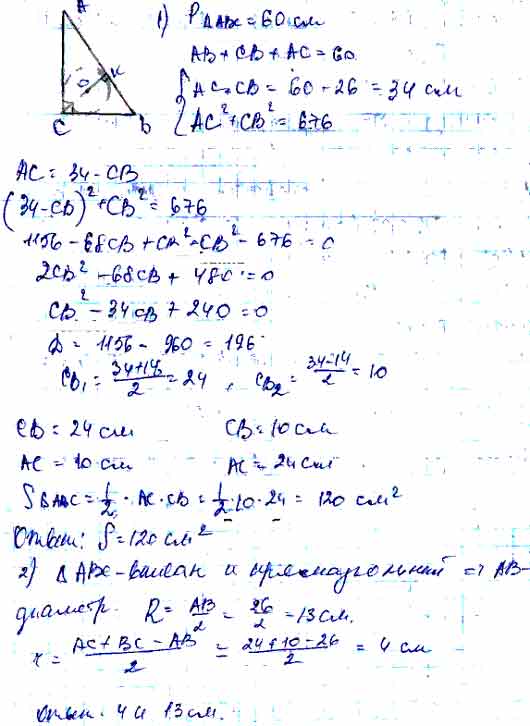 A
1) P△ABC = 60 см
AB + CB + AC = 60
AC + CB = 60 - 26 = 34 см
AC² + CB² = 676
O K
C B
AC = 34 - CB
(34-CB)² + CB² = 676
1156 - 68CB + CB² + CB² - 676 = 0
2CB² - 68CB + 480 = 0
CB² - 34CB + 240 = 0
D = 1156 - 960 = 196
CB₁ = (34+14)/2 = 24 , CB₂ = (34-14)/2 = 10
CB = 24 см CB = 10 см
AC = 10 см AC = 24 см
S△ABC = 1/2 · AC · CB = 1/2 · 10 · 24 = 120 см²
Ответ: S = 120 см²
2) △ABC - вписан и прямоугольный => AB -
диаметр. R = AB/2 = 26/2 = 13 см.
r = (AC + BC - AB)/2 = (24 + 10 - 26)/2 = 4 см
Ответ. 4 и 13 см.